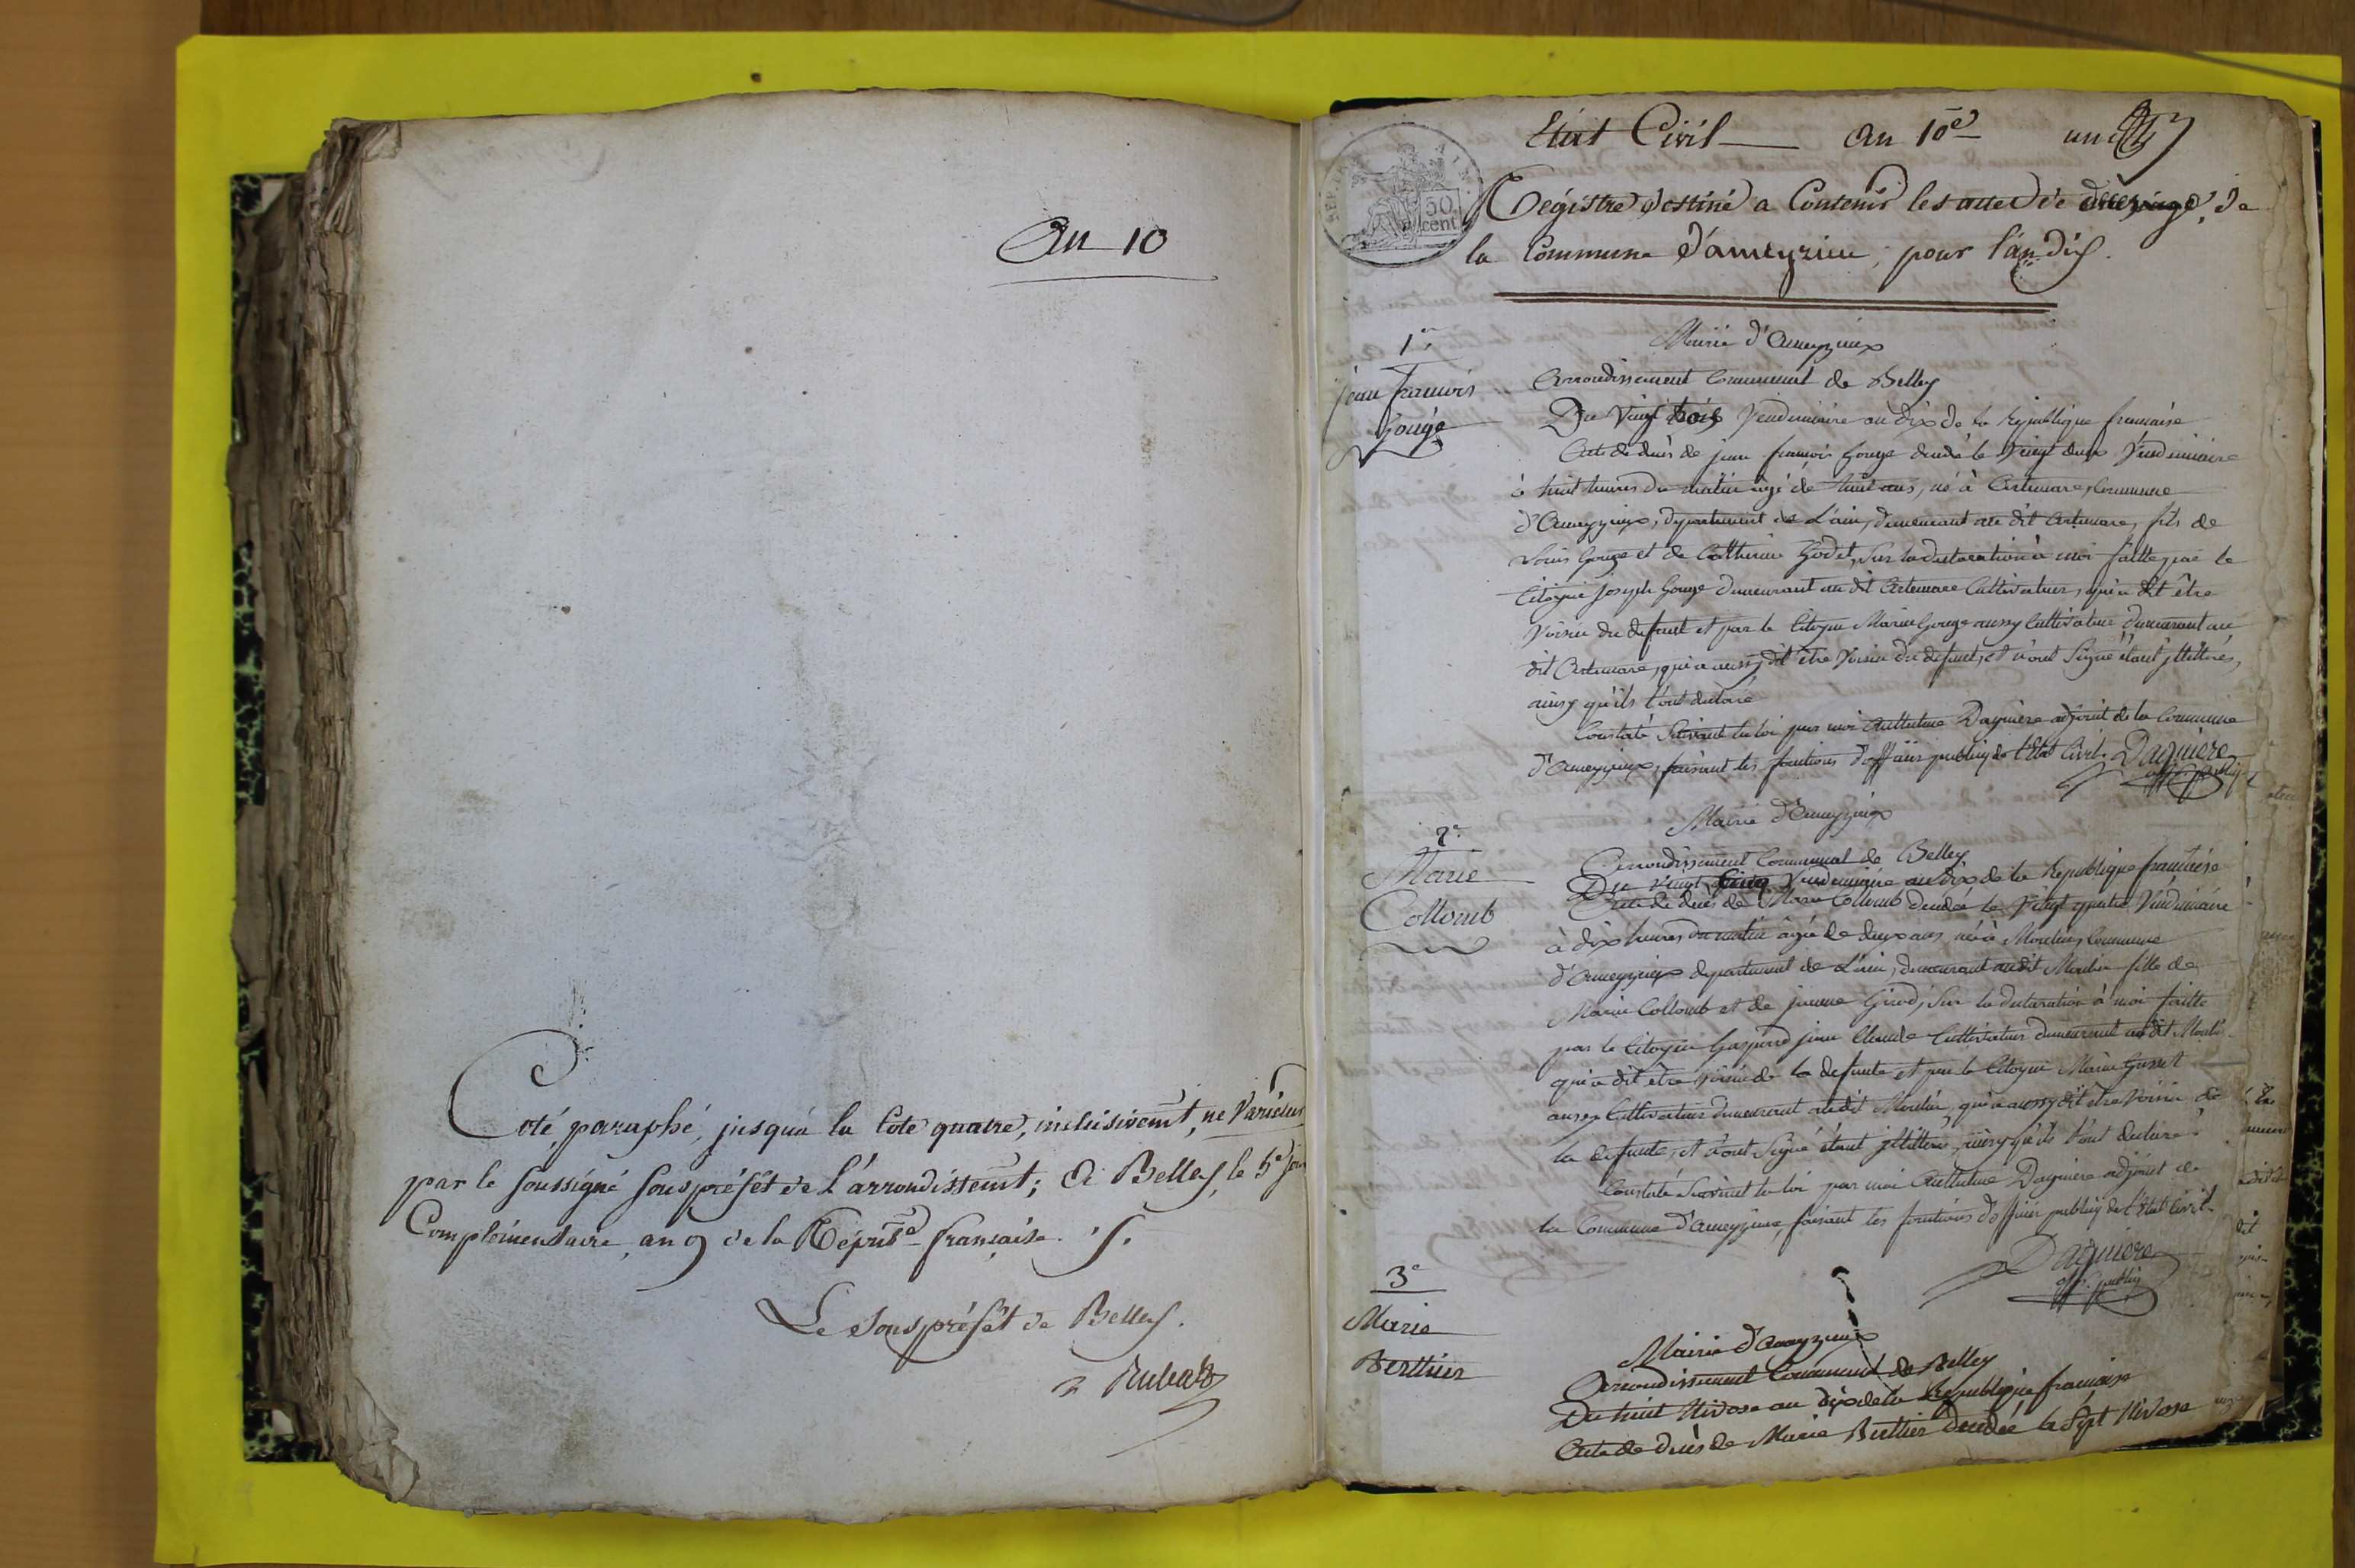 An 10
Coté, paraphé, jusqu'à la Cote quatre, inclusivemt, ne Varietur
par le soussigné sous préfet de L'arrondissemt; A Belley, le 5e jour
Complémentaire, an 9 de la Répubque française.
Le sous préfet de Belley.
Rubat
Etat Civil — an 10e un
REP. FRA.
50
cent.
Régistre destiné a Contenir les actes de de
la Commune d'ameyzieu, pour l'an dix.
1er
jean francois
Gouge
Mairie d'Ameyzieux
Arrondissement Communal de Belley
Du Vingt trois Vendemiaire an dix de la République francaise
Acte de décès de jean francois Gouge décédé le Vingt deux Vendemiaire
à huit heures du matin agé de huit ans, né à Artemare, Commune
d'Ameyzieux, departement de L'ain, demeurant au dit Artemare, fils de
Louis Gouge et de Catherine Godet, Sur la declaration à moi faitte par le
Citoyen joseph Gouge demeurant au dit Artemare Cultivateur, qui a dit être
Voisin du defunt et par le Citoyen Marin Gouge aussy Cultivateur demeurant au
dit Artemare, qui a aussy dit être Voisin du defunt, et n'ont Signé étant jllittérés,
ainsy qu'ils l'ont declaré
Constaté Suivant la loi par moi Anthelme Dagniere adjoint de la Commune
d'Ameyzieux, faisant les fonctions d'officier publiq de l'Etat Civil. Dagniere
off. publiq
2e
Marie
Collomb
Mairie d'Ameyzieux
Arrondissement Communal de Belley
Du vingt Cinq Vendemiaire an dix de la République francaise
Acte de décès de Marie Collomb décédée le Vingt quatre Vendemiaire
à dix heures du matin agée de deux ans née à Moulin, Commune
d'Ameyzieux departement de L'ain, demeurant audit Moulin fille de
Marin Collomb et de jeanne Girod, Sur la declaration à moi faitte
par le Citoyen Gaspard jean Claude Cultivateur demeurant au dit
qui a dit être voisin de la defunte et par le Citoyen Marin
aussy Cultivateur demeurant audit Moulin, qui a aussy dit être Voisin de
la defunte, et n'ont Signé étant jllittérés, ainsy qu'ils l'ont declaré
Constaté Suivant la loi par moi Anthelme Dagniere adjoint de
la Commune d'Ameyzieux, faisant les fonctions d'officier publiq de l'Etat Civil.
Dagniere
off. publiq
3e
Marie
Berthier
Mairie d'Ameyzieux
Arrondissement Communal de Belley
Du huit Nivose an dix de la République francaise
Acte de décès de Marie Berthier décédée le Sept Nivose